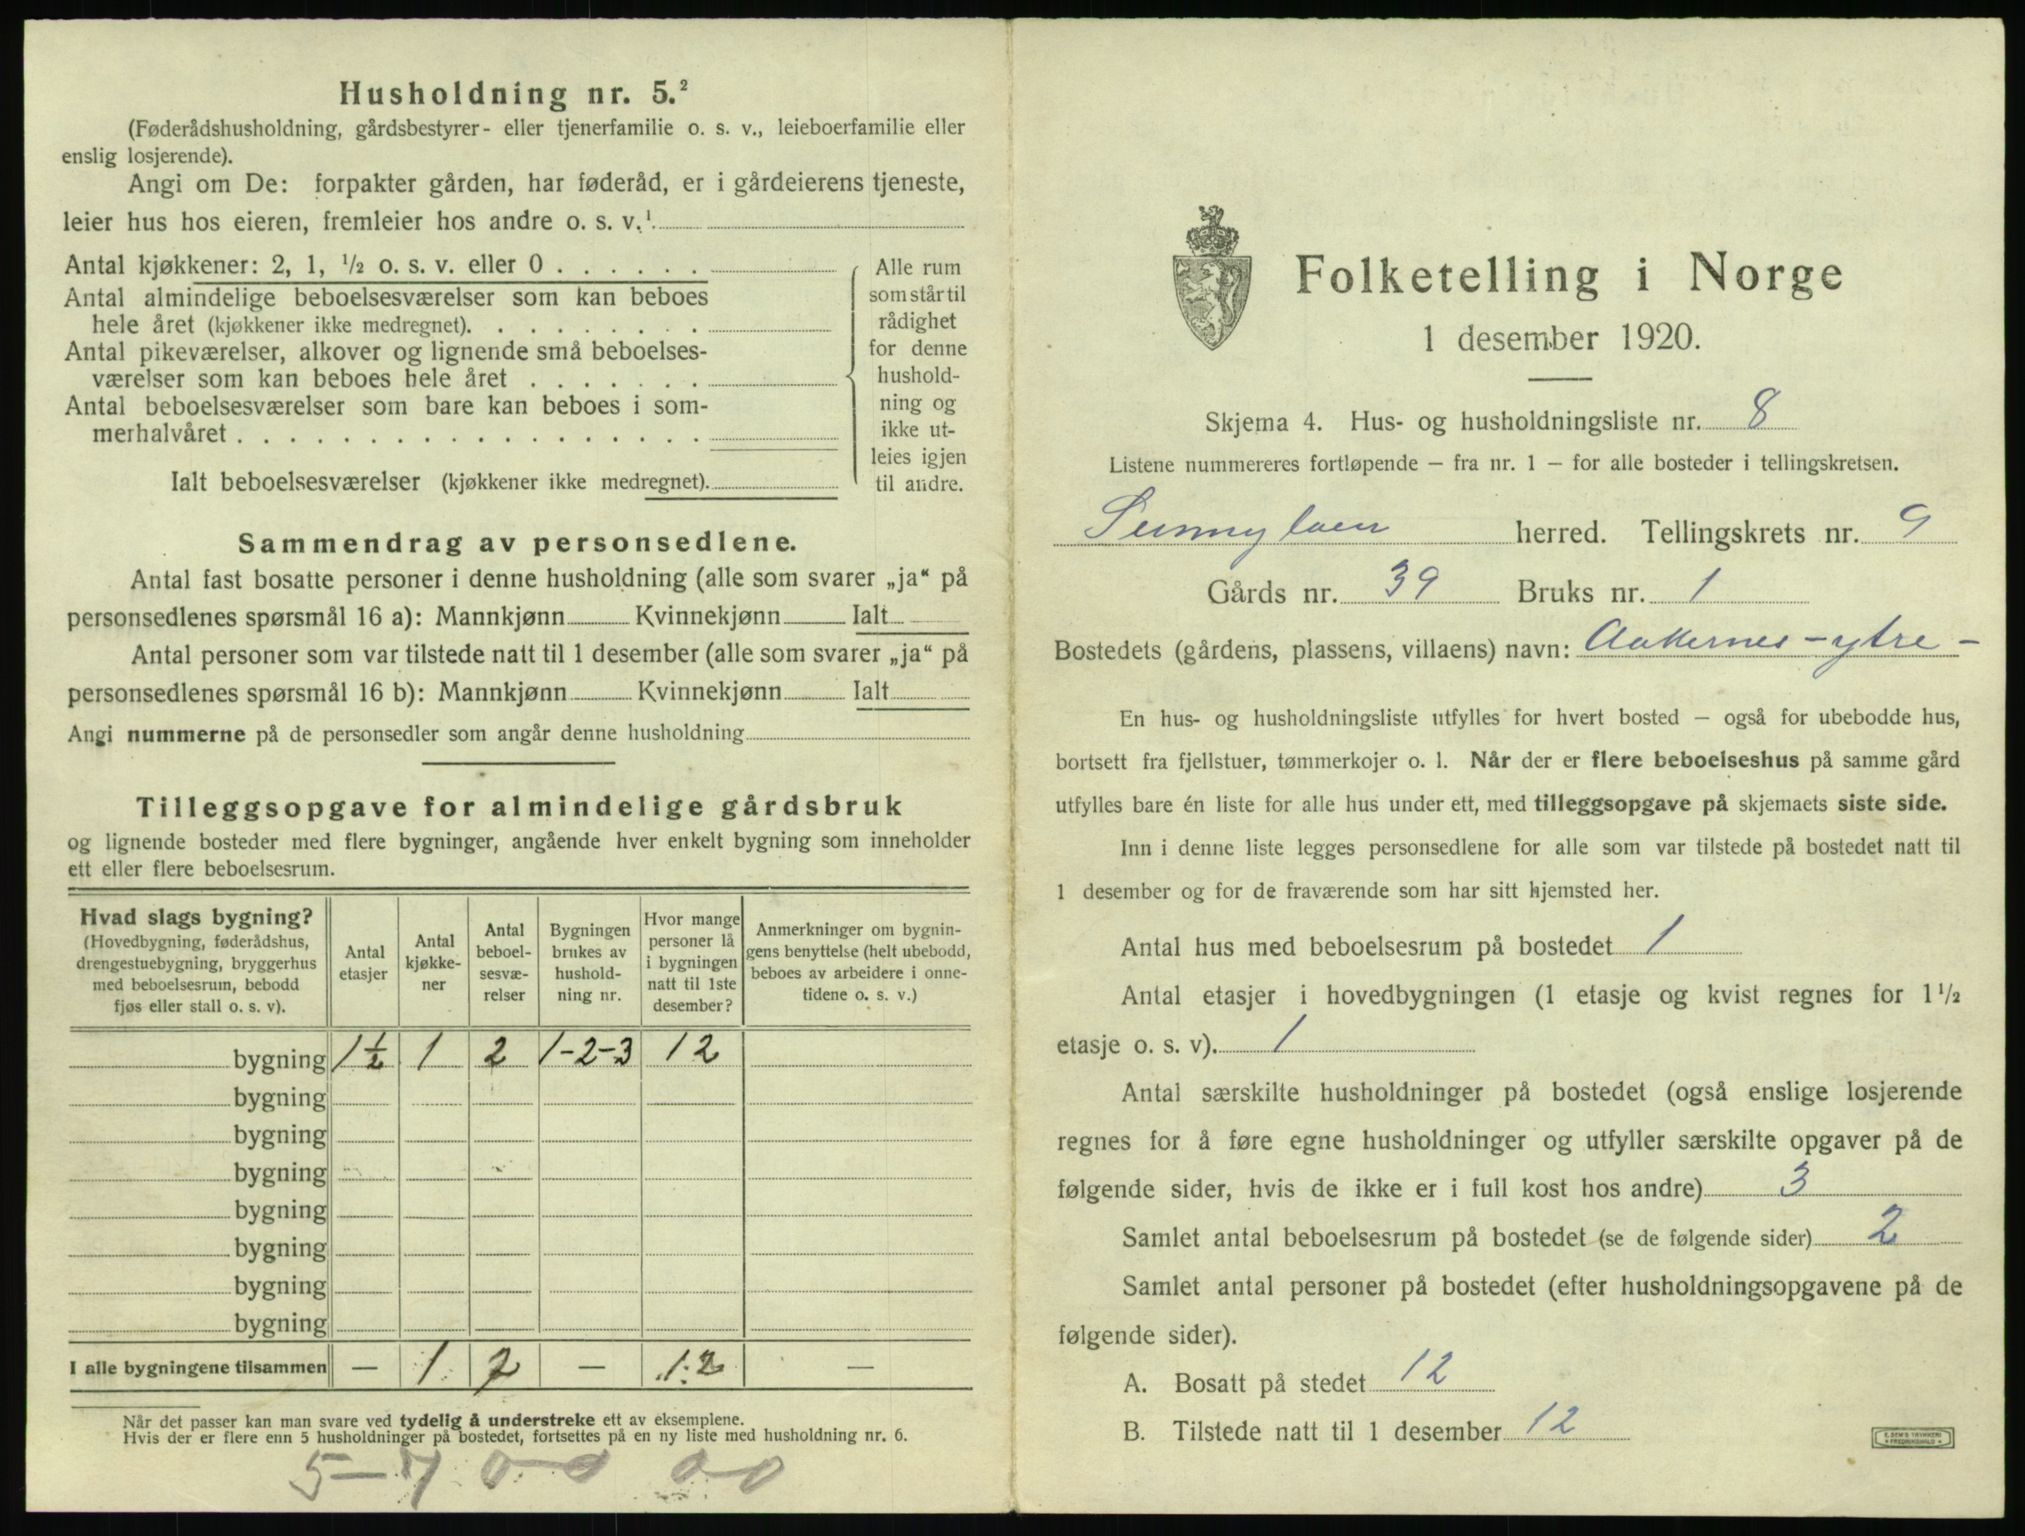 Husholdning nr. 5.²
(Føderådshusholdning, gårdsbestyrer- eller tjenerfamilie o. s. v., leieboerfamilie eller
enslig losjerende).
Angi om De: forpakter gården, har føderåd, er i gårdeierens tjeneste,
leier hus hos eieren, fremleier hos andre o. s. v.¹
Antal kjøkkener: 2, 1, ½ o. s. v. eller 0 . . . . . .
Antal almindelige beboelsesværelser som kan beboes
hele året (kjøkkener ikke medregnet). . . . . . . . .
Antal pikeværelser, alkover og lignende små beboelses-
værelser som kan beboes hele året . . . . . . .
Antal beboelsesværelser som bare kan beboes i som-
merhalvåret . . . . . . . . . . . . . . . . . .
Ialt beboelsesværelser (kjøkkener ikke medregnet).
Alle rum
som står til
rådighet
for denne
hushold-
ning og
ikke ut-
leies igjen
til andre.
Sammendrag av personsedlene.
Antal fast bosatte personer i denne husholdning (alle som svarer „ja“ på
personsedlenes spørsmål 16 a): Mannkjønn Kvinnekjønn Ialt
Antal personer som var tilstede natt til 1 desember (alle som svarer „ja“ på
personsedlenes spørsmål 16 b): Mannkjønn Kvinnekjønn Ialt
Angi nummerne på de personsedler som angår denne husholdning
Tilleggsopgave for almindelige gårdsbruk
og lignende bosteder med flere bygninger, angående hver enkelt bygning som inneholder
ett eller flere beboelsesrum.
Hvad slags bygning?
(Hovedbygning, føderådshus,
drengestuebygning, bryggerhus
med beboelsesrum, bebodd
fjøs eller stall o. s. v).
Antal
etasjer
Antal
kjøkke-
ner
Antal
beboel-
sesvæ-
relser
Bygningen
brukes av
hushold-
ning nr.
Hvor mange
personer lå
i bygningen
natt til 1ste
desember?
Anmerkninger om bygnin-
gens benyttelse (helt ubebodd,
beboes av arbeidere i onne-
tidene o. s. v.)
bygning 1½ 1 2 1-2-3 12
bygning
bygning
bygning
bygning
bygning
bygning
bygning
I alle bygningene tilsammen — 1 2 — 12 —
Når det passer kan man svare ved tydelig å understreke ett av eksemplene.
Hvis der er flere enn 5 husholdninger på bostedet, fortsettes på en ny liste med husholdning nr. 6.
5-7 0-0 0-0
Folketelling i Norge
1 desember 1920.
Skjema 4. Hus- og husholdningsliste nr. 8
Listene nummereres fortløpende — fra nr. 1 — for alle bosteder i tellingskretsen.
Sunnylven herred. Tellingskrets nr. 9
Gårds nr. 39 Bruks nr. 1
Bostedets (gårdens, plassens, villaens) navn: Aakernes-ytre-
En hus- og husholdningsliste utfylles for hvert bosted — også for ubebodde hus,
bortsett fra fjellstuer, tømmerkojer o. l. Når der er flere beboelseshus på samme gård
utfylles bare én liste for alle hus under ett, med tilleggsopgave på skjemaets siste side.
Inn i denne liste legges personsedlene for alle som var tilstede på bostedet natt til
1 desember og for de fraværende som har sitt hjemsted her.
Antal hus med beboelsesrum på bostedet 1
Antal etasjer i hovedbygningen (1 etasje og kvist regnes for 1½
etasje o. s. v). 1
Antal særskilte husholdninger på bostedet (også enslige losjerende
regnes for å føre egne husholdninger og utfyller særskilte opgaver på de
følgende sider, hvis de ikke er i full kost hos andre) 3
Samlet antal beboelsesrum på bostedet (se de følgende sider) 2
Samlet antal personer på bostedet (efter husholdningsopgavene på de
følgende sider).
A. Bosatt på stedet 12
B. Tilstede natt til 1 desember 12
E. SEM'S TRYKKERI
FREDRIKSHALD